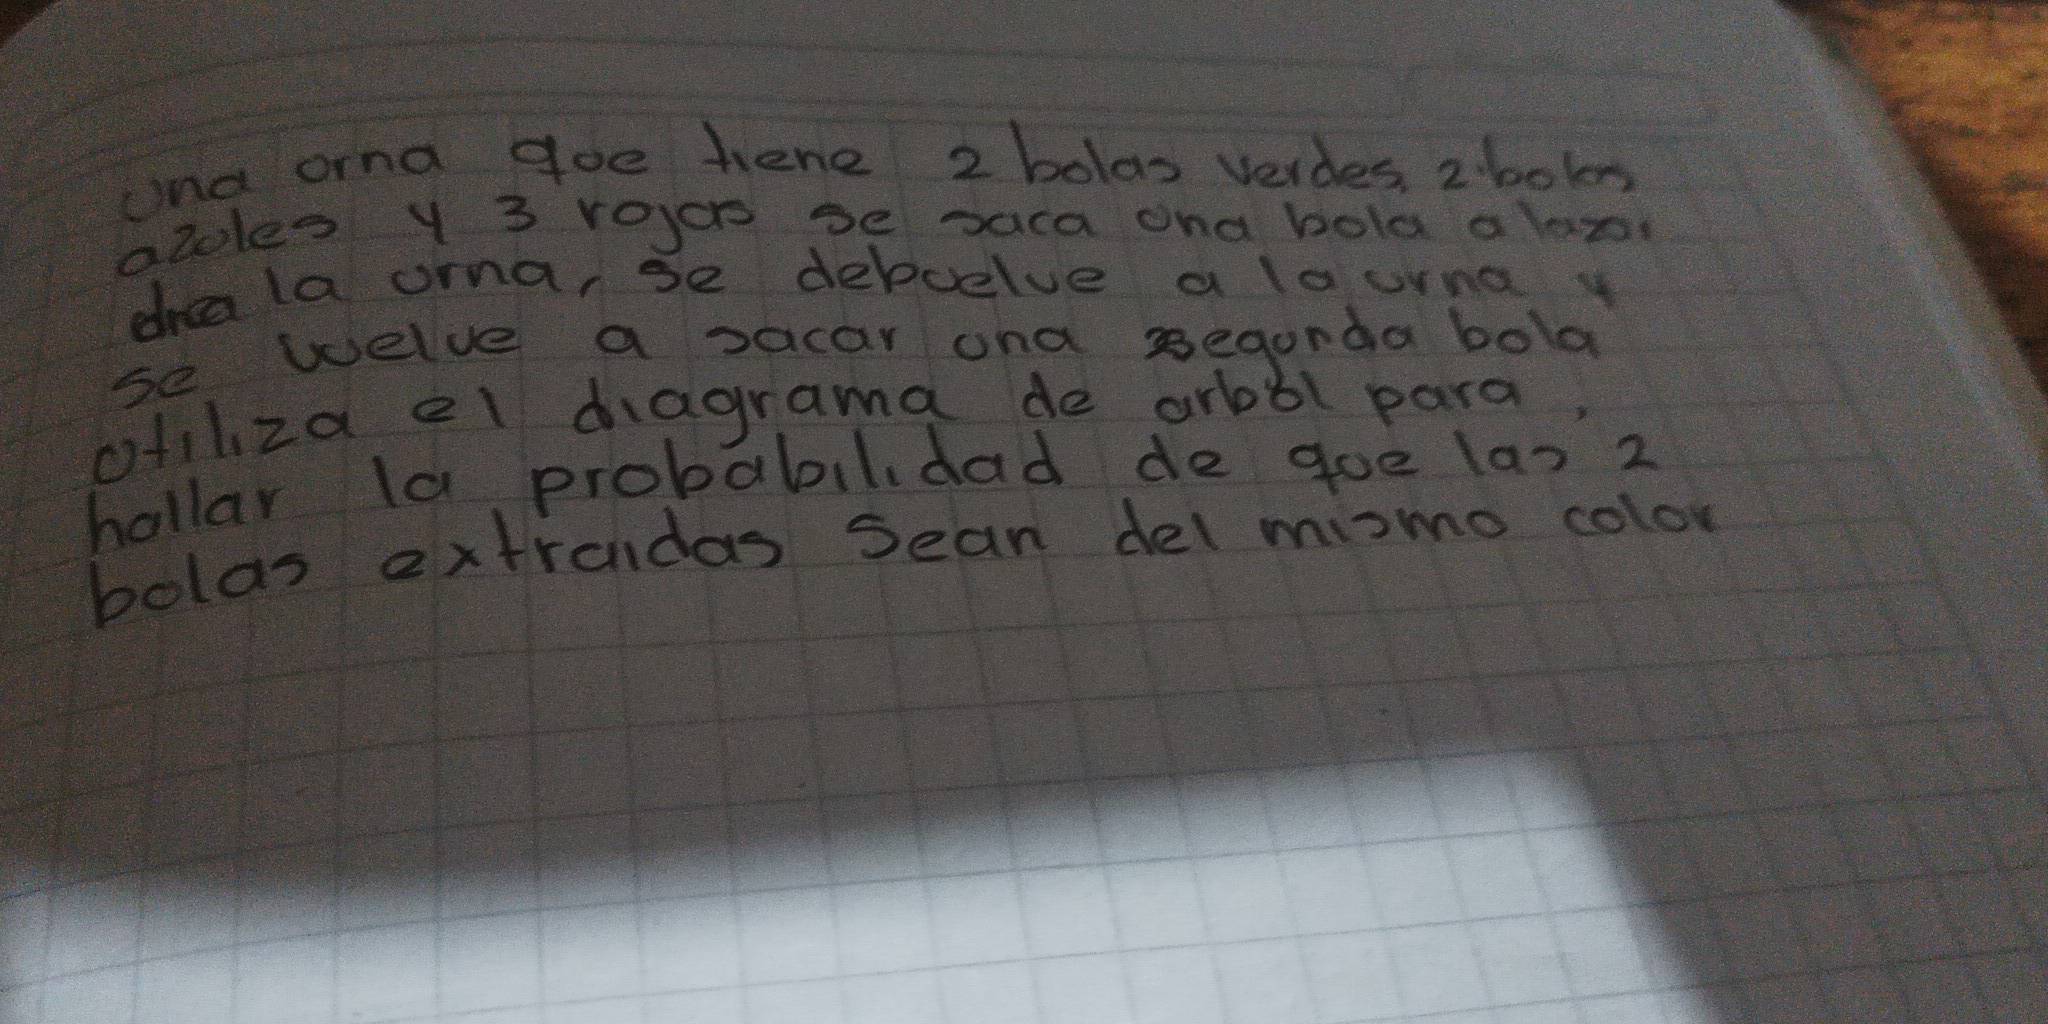 Una orna que tiene 2 bolas verdes, 2 bolas
azules y 3 rojas se saca una bola al azar
la urna, se debuelve a la urna y
se vuelve a sacar una segunda bola
utiliza el diagrama de arbol para,
hallar la probabilidad de que las 2
bolas extraidas sean del mismo color